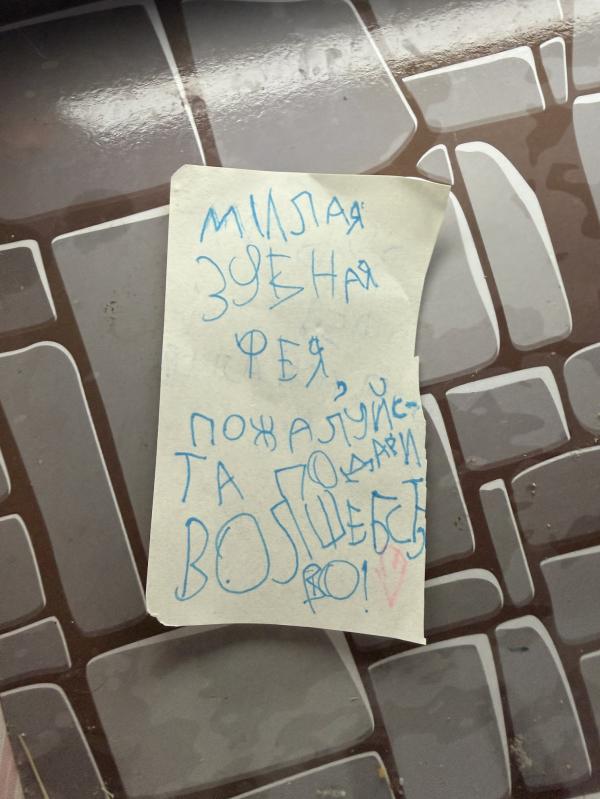 МИЛАЯ
ЗУБНАЯ
ФЕЯ,
ПОЖАЛУЙС-
ТА ПОДАРИ
ВОЛШЕБСТ
ВО!